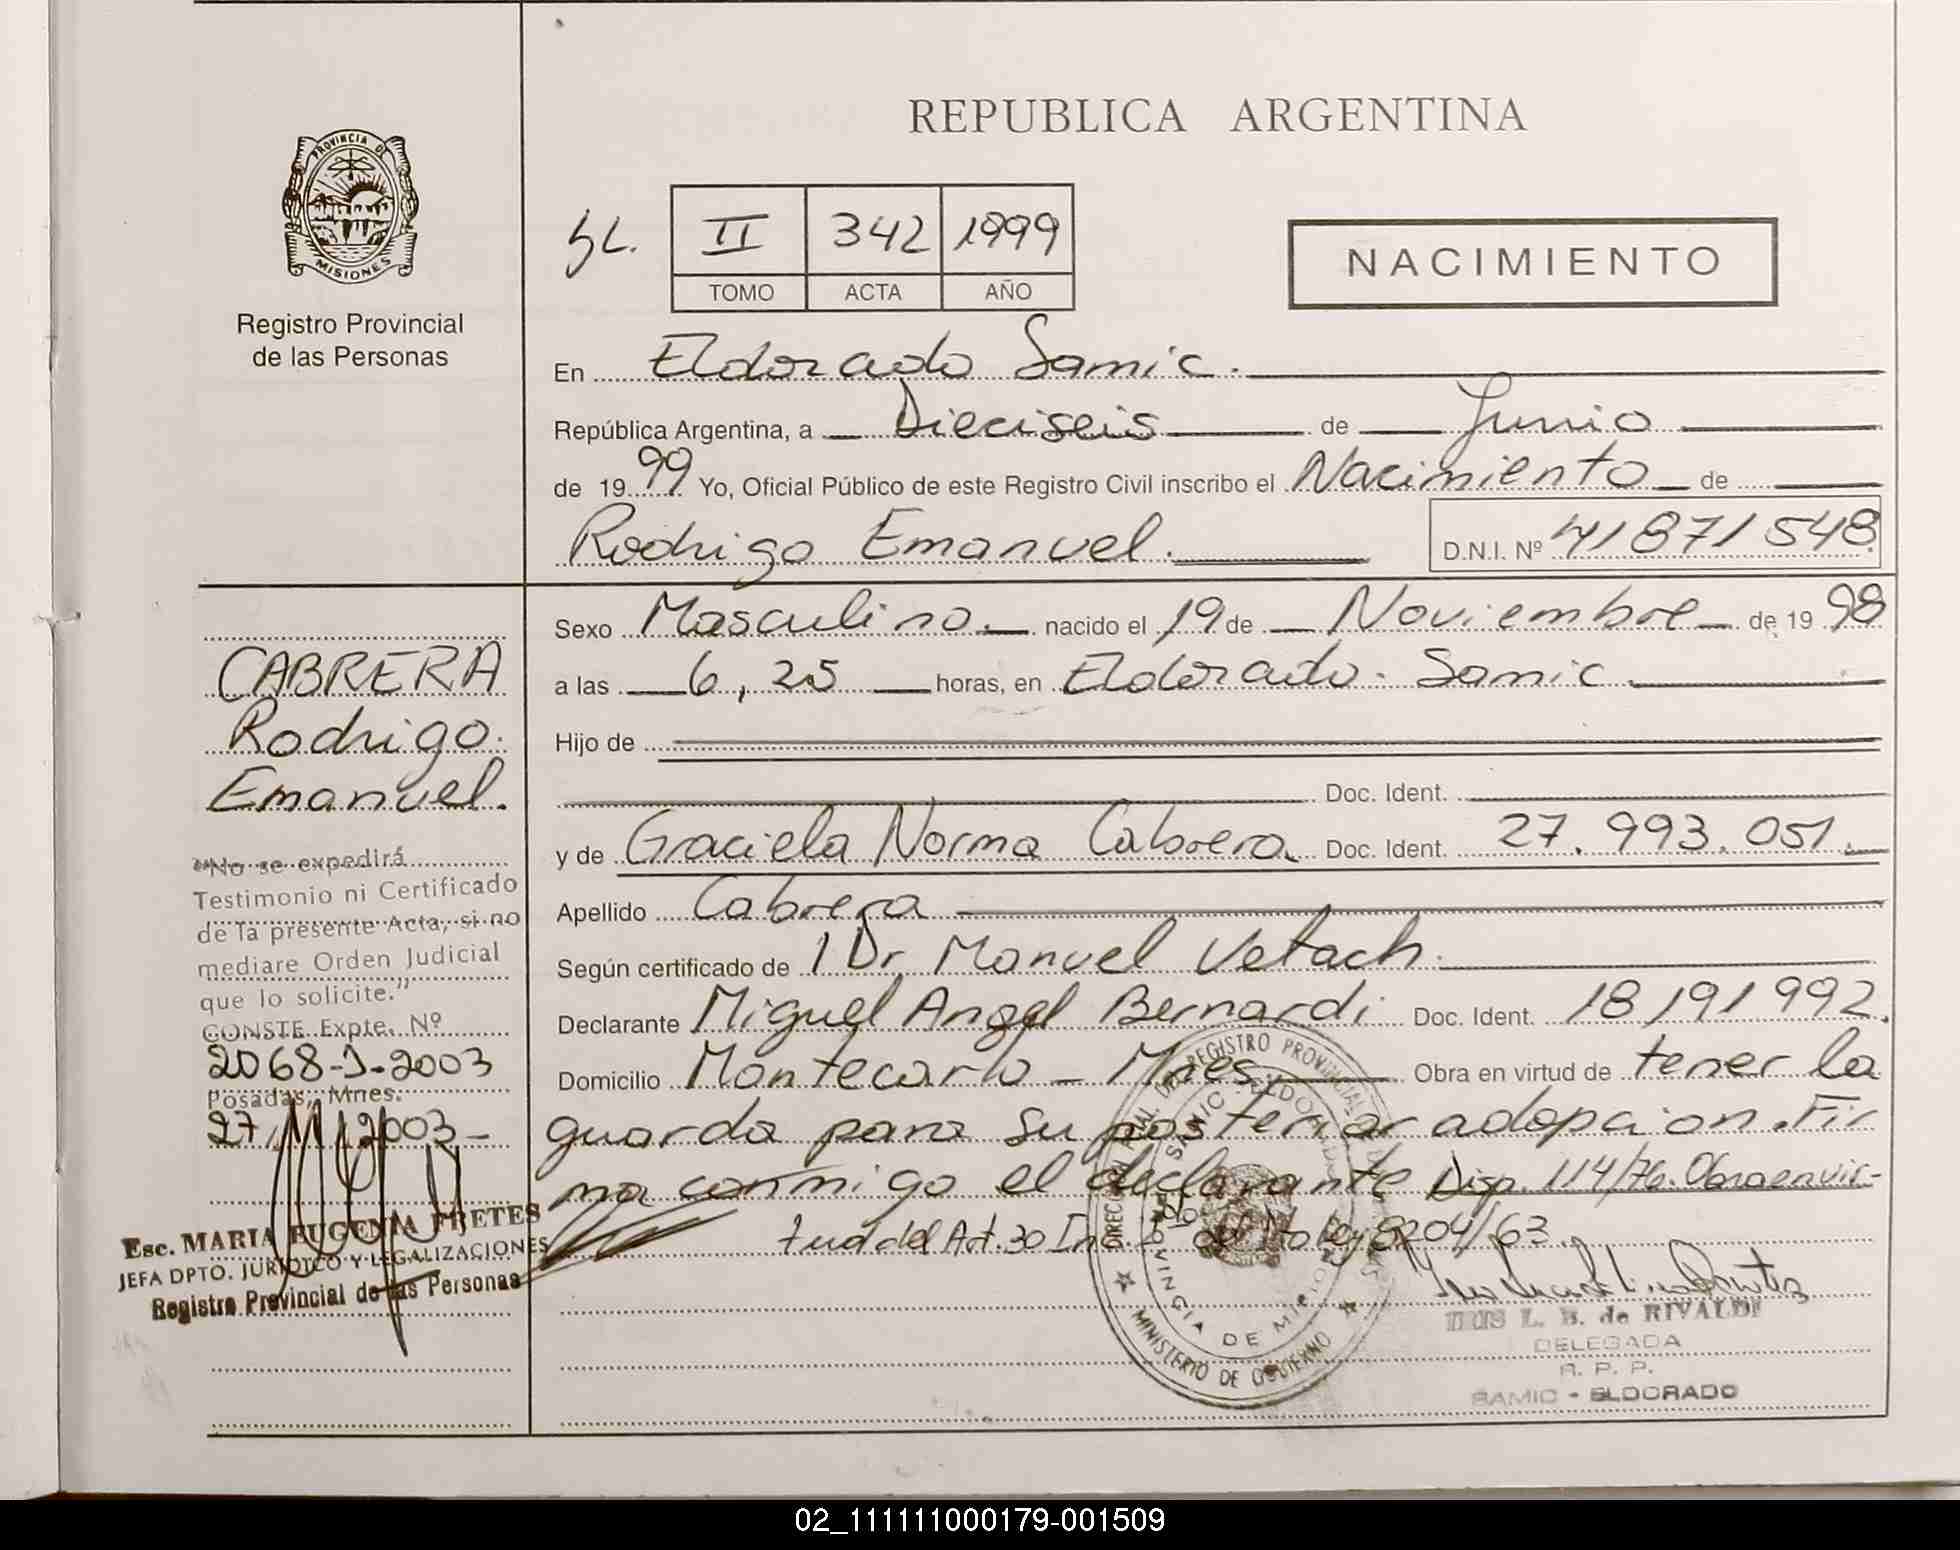 REPUBLICA ARGENTINA
PROVINCIA DE
MISIONES
Registro Provincial
de las Personas
II 342 1999
TOMO ACTA AÑO
NACIMIENTO
En Eldorado Samic.
República Argentina, a Dieciseis de Junio
de 1999 Yo, Oficial Público de este Registro Civil inscribo el Nacimiento de
Rodrigo Emanuel. D.N.I. Nº 41871548
CABRERA
Rodrigo
Emanuel.
"No se expedirá
Testimonio ni Certificado
de la presente Acta, si no
mediare Orden Judicial
que lo solicite."
CONSTE Expte. Nº
2068-J-2003
Posadas, Mnes.
27/11/2003
Esc. MARIA EUGENIA FRETES
JEFA DPTO. JURIDICO Y LEGALIZACIONES
Registro Provincial de las Personas
Sexo Masculino nacido el 19 de Noviembre de 1998
a las 6,25 horas, en Eldorado. Samic
Hijo de
Doc. Ident.
y de Graciela Norma Cabrera Doc. Ident. 27.993.051.
Apellido Cabrera
Según certificado de l Dr Manuel Vetach.
Declarante Miguel Angel Bernardi Doc. Ident. 18191992.
Domicilio Montecarlo - Mnes, Obra en virtud de tener la
guarda para su posterior adopcion. Fir
ma conmigo el declarante Disp. 114/76. Obra en vir-
tud del Art. 30 Inc. del Dto Ley 8204/63
REGISTRO PROVINCIAL
SAMIC - ELDORADO
PROVINCIA DE MISIONES
MINISTERIO DE GOBIERNO
IRIS L. B. de RIVALDI
DELEGADA
R. P. P.
SAMIC - ELDORADO
02_111111000179-001509